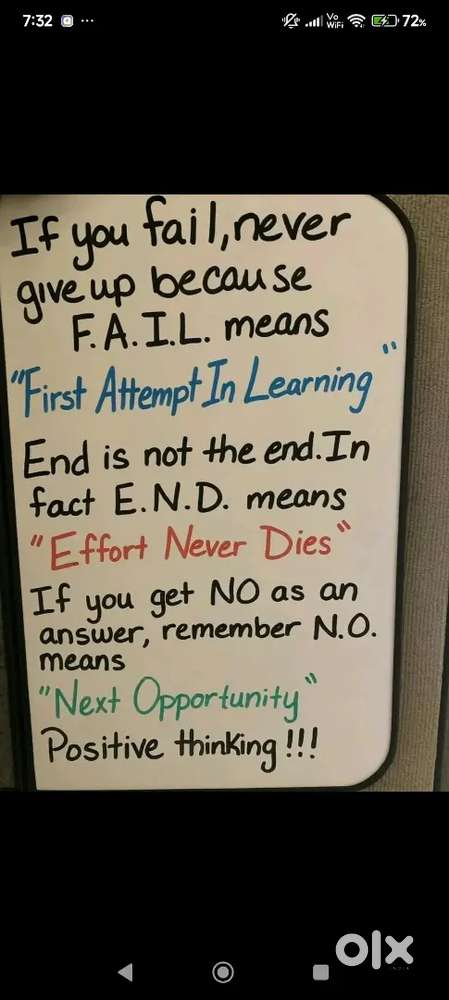 7:32
Vo
WiFi
72%
If you fail, never
give up because
F.A.I.L. means
"First Attempt In Learning"
End is not the end. In
fact E.N.D. means
"Effort Never Dies"
If you get NO as an
answer, remember N.O.
means
"Next Opportunity"
Positive thinking!!!
olx
INDIA